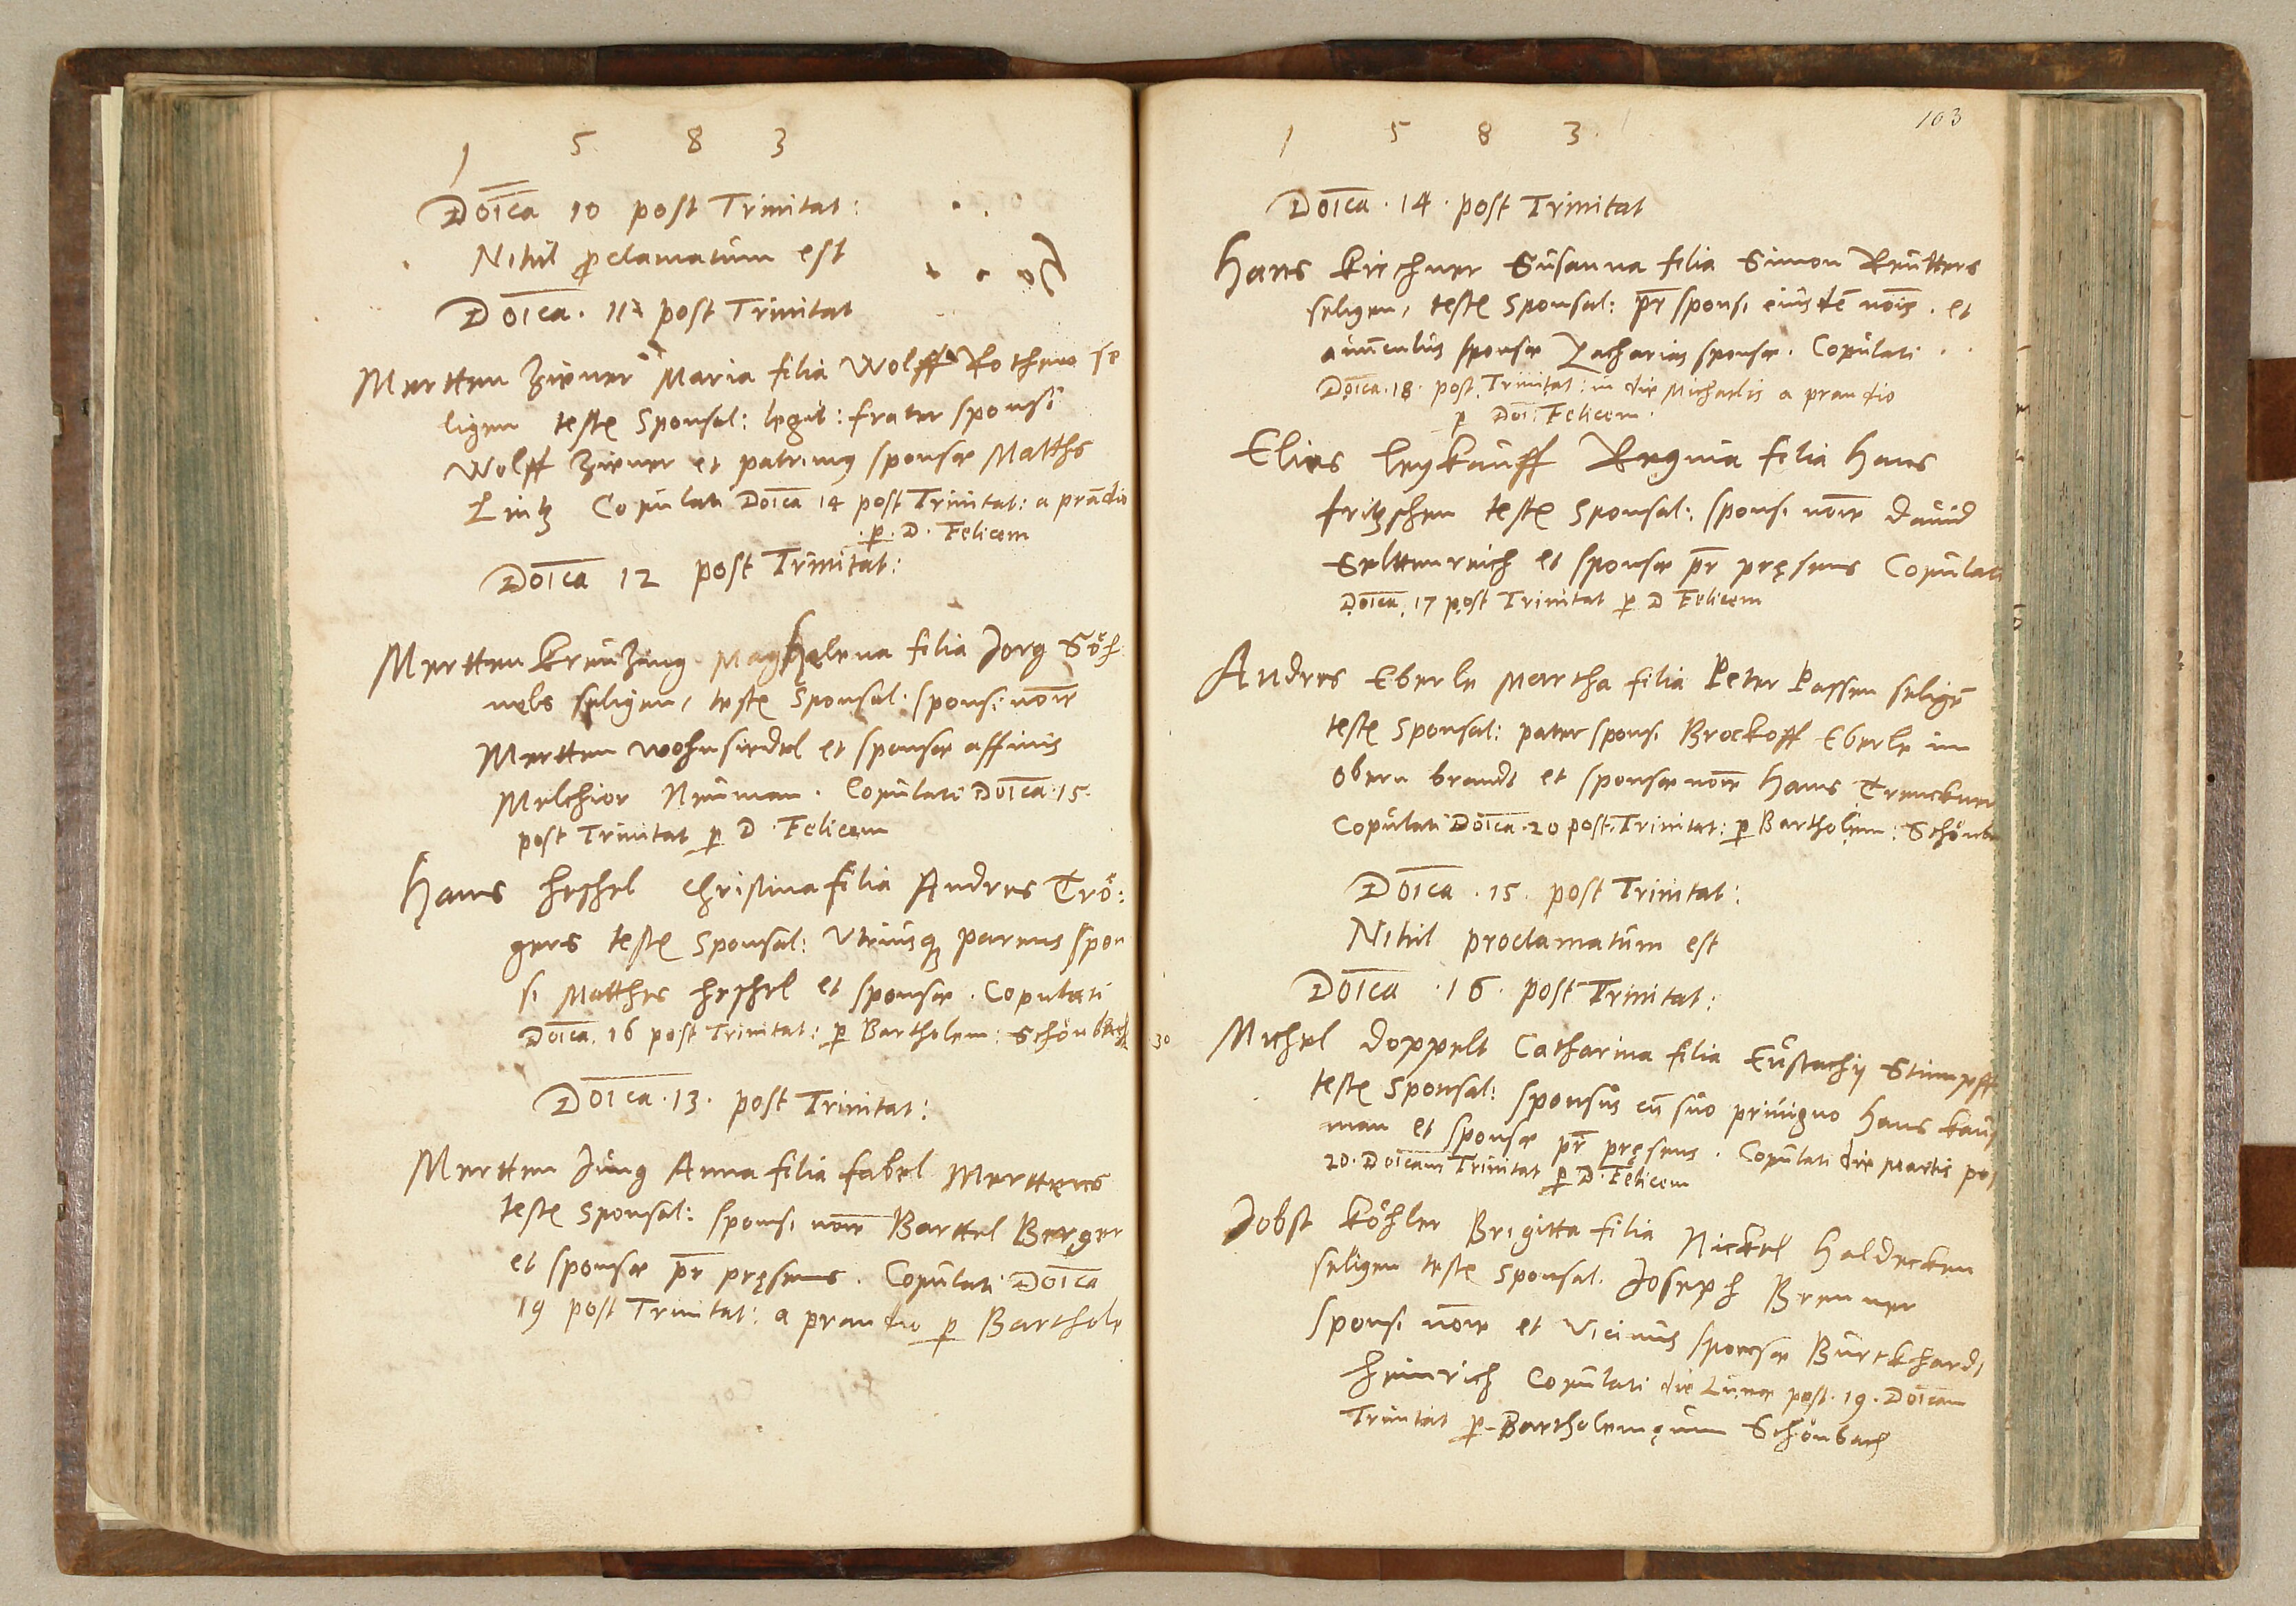 1 5 8 3
Doica 10 post Trinitat:
Nihil proclamatum est
Doica. 11 post Trinitat
Mertten Ziener Maria filia Wolff Rothens se
ligen testes Sponsal: legit: frater sponsi
Wolff Ziener et patrinus sponsae Matths
Lintz Copulati Doica 14 post Trinitat: a prandio
p. D. Felicem
Doica 12 post Trinitat:
Mertten Kreutzing Magdalena filia Jorg Söh
nels seligen, testes Sponsal: sponsi noie
Mertten Wohnsiedel et sponsae affinis
Melchior Neuman. Copulati Doica 15.
post Trinitat p D. Felicem
Hans Heshel Christina filia Andres Trö:
gers testes Sponsal: Utriusq parens spon
si Matthes Heshel et sponsae. Copulati
Doica. 16 post Trinitat: p Bartholem: Schönbach
Doica. 13. post Trinitat:
Mertten Jung Anna filia Fabel Merttens
testes Sponsal: sponsi noie Barttel Berger
et sponsae pr presens. Copulati Doica
19 post Trinitat: a prandio p Barthole
1 5 8 3.
103
Doica. 14. post Trinitat
Hans Kirchner Susanna filia Simon Reutters
seligen, testes Sponsal: pr sponsi eiusde nois. et
avunculus sponsae Zacharias sponsae. Copulati
Doica. 18. post Trinitat: in die Michaelis a prandio
p Doi Felicem.
Elias Leykauff Regina filia Hans
Fritzschen testes Sponsal: sponsi noie David
Selttenreich et sponsae pr presens Copulati
Doica. 17 post Trinitat p D Felicem
Andres Eberle Martha filia Peter Passen selige
testes Sponsal: pater sponsi Brockoff Eberle im
obern brandt et sponsae noie Hans Trenckner
Copulati Doica. 20 post. Trinitat: p Bartholem: Schönba
Doica. 15. post Trinitat:
Nihil proclamatum est
Doica. 16. post Trinitat:
30 Michel Doppelt Catharina filia Eustachij Stimpff
testes Sponsal: sponsus cu suo privigno Hans Kauf
man et sponsae pr presens. Copulati die Martis pos
20. Doicam Trinitat p D. Felicem
Jobst Köhler Brigitta filia Nickel Haldecken
seligen testes Sponsal. Joseph Brenner
sponsi noie et Vicinus sponsae Burckhardt
Heinrich Copulati die Lunae post. 19. Doicam
Trinitat p. Bartholemeum Schönbach